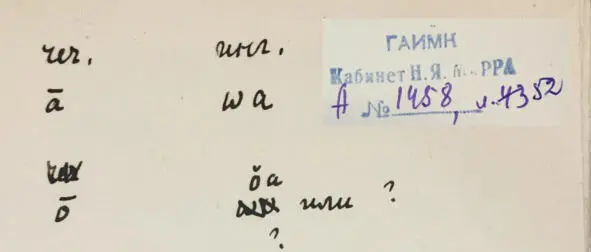 чеч. инг.
ā wa
ō ŏa
или ?
?
ГАИМК
Кабинет Н.Я. МАРРА
А № 1458, л. 4352